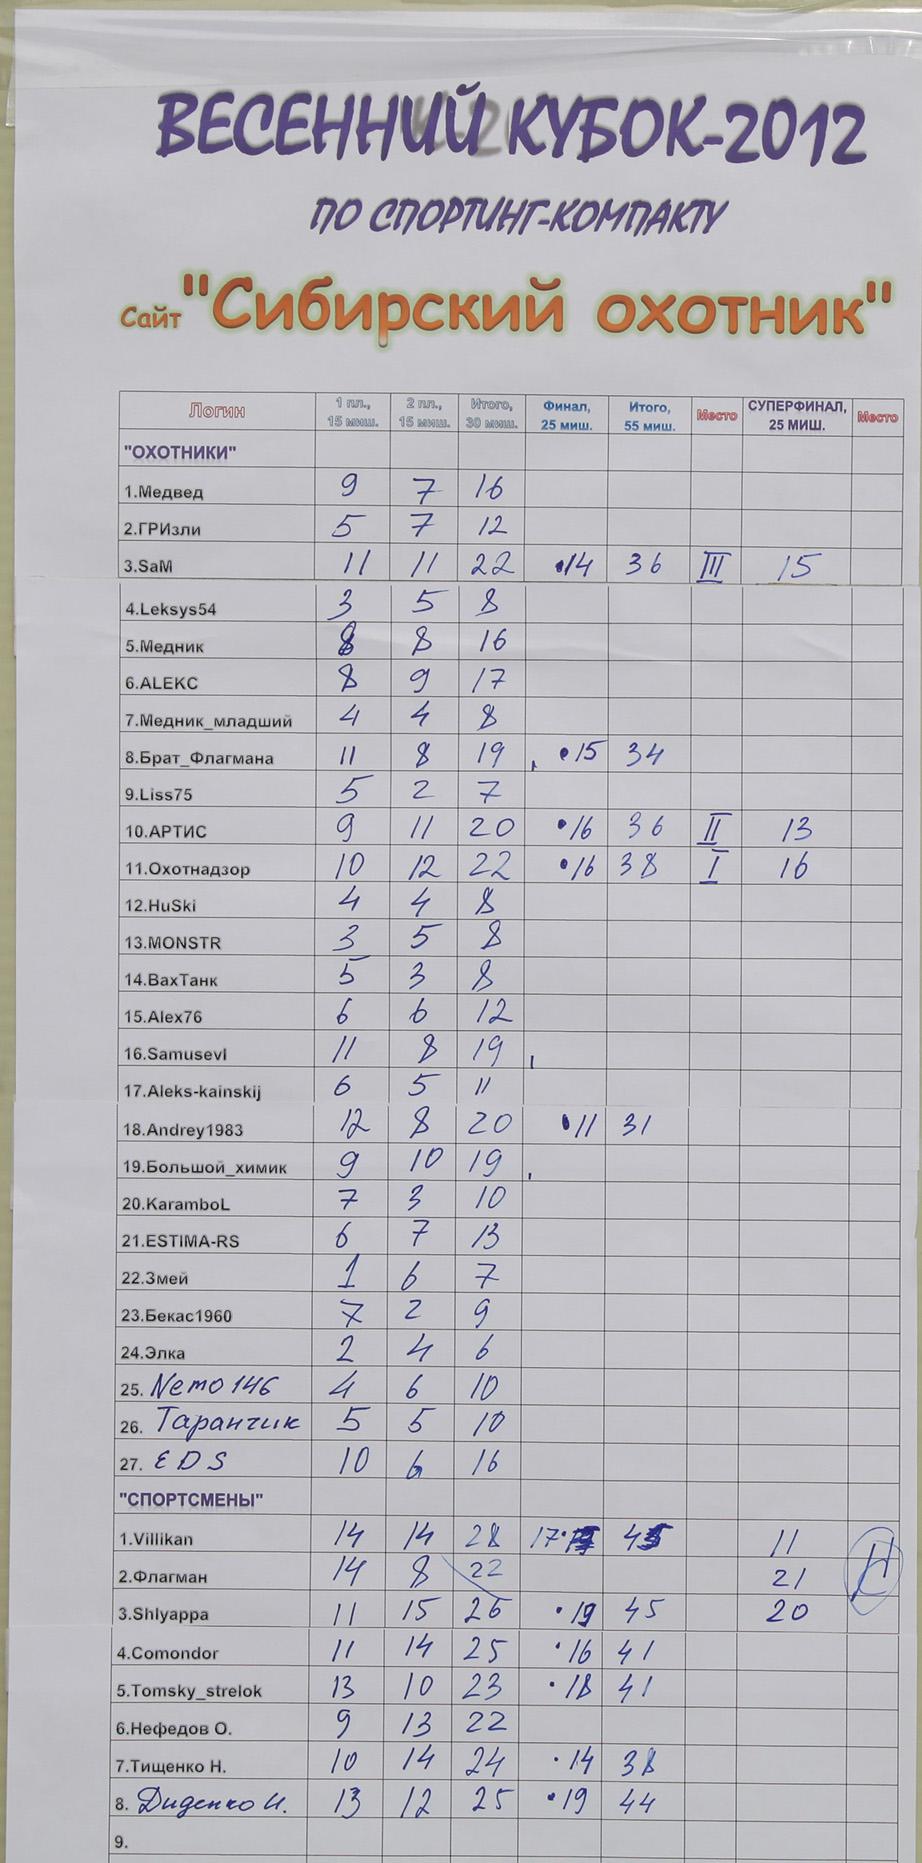 ВЕСЕННИЙ КУБОК-2012
ПО СПОРТИНГ-КОМПАКТУ
Сайт "Сибирский охотник"
Логин 1 пл., 15 миш. 2 пл., 15 миш. Итого, 30 миш. Финал, 25 миш. Итого, 55 миш. Место СУПЕРФИНАЛ, 25 МИШ. Место
"ОХОТНИКИ"
1.Медвед 9 7 16
2.ГРИзли 5 7 12
3.SaM 11 11 22 •14 36 III 15
4.Leksys54 3 5 8
5.Медник 8 8 16
6.ALEKC 8 9 17
7.Медник_младший 4 4 8
8.Брат_Флагмана 11 8 19 •15 34
9.Liss75 5 2 7
10.АРТИС 9 11 20 •16 36 II 13
11.Охотнадзор 10 12 22 •16 38 I 16
12.HuSki 4 4 8
13.MONSTR 3 5 8
14.ВахТанк 5 3 8
15.Alex76 6 6 12
16.Samusevl 11 8 19
17.Aleks-kainskij 6 5 11
18.Andrey1983 12 8 20 •11 31
19.Большой_химик 9 10 19
20.KaramboL 7 3 10
21.ESTIMA-RS 6 7 13
22.Змей 1 6 7
23.Бекас1960 7 2 9
24.Элка 2 4 6
25. Nemo 146 4 6 10
26. Таранчик 5 5 10
27. EDS 10 6 16
"СПОРТСМЕНЫ"
1.Villikan 14 14 28 17 45 11
2.Флагман 14 8 22 21
3.Shlyappa 11 15 26 •19 45 20
4.Comondor 11 14 25 •16 41
5.Tomsky_strelok 13 10 23 •18 41
6.Нефедов О. 9 13 22
7.Тищенко Н. 10 14 24 •14 38
8. Диденко И. 13 12 25 •19 44
9.